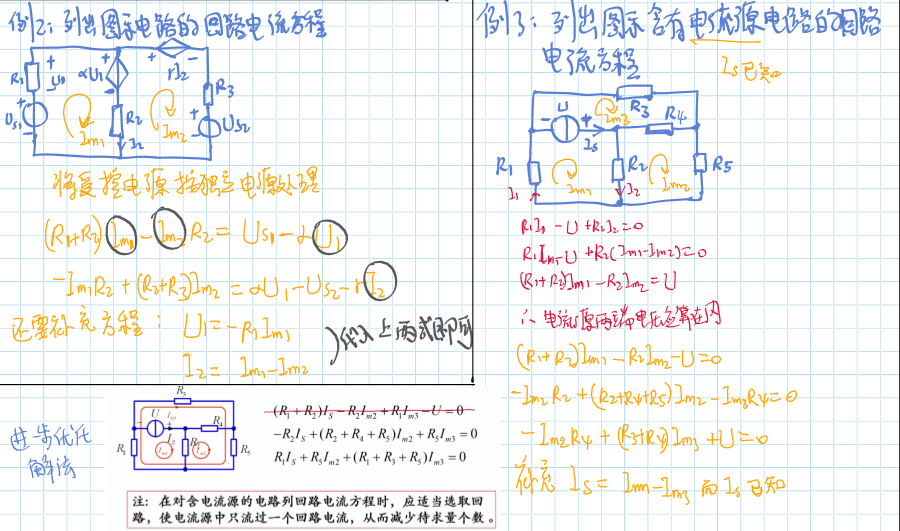 例2：列出图示电路的回路电流方程
R₁ + U₁ - + αU₁ - + rI₂ - R₃
+ Us₁ - R₂ I₂ Im₁ Im₂ + Us₂ -
将受控电源按独立电源处理
(R₁+R₂)Im₁-Im₂R₂=Us₁-αU₁
-Im₁R₂+(R₂+R₃)Im₂=αU₁-Us₂-rI₂
还要补充方程：U₁=-R₁Im₁
I₂=Im₁-Im₂
}代入上两式即可
例3：列出图示含有电流源电路的回路
电流方程
Is已知
U Im₃ R₃ R₄
- + Is
R₁ Im₁ R₂ Im₂ R₅
I₁ I₂
R₁I₁-U+R₂I₂=0
R₁Im₁-U+R₂(Im₁-Im₂)=0
(R₁+R₂)Im₁-R₂Im₂=U
∴电流源两端电压应算在内
(R₁+R₂)Im₁-R₂Im₂-U=0
-Im₂R₂+(R₂+R₄+R₅)Im₂-Im₃R₄=0
-Im₂R₄+(R₃+R₄)Im₃+U=0
补充 Is=Im₁-Im₃ 而Is已知
进一步优化
解法
R₃
U Im₃ R₄
R₁ Is R₂ R₅
(R₁+R₂)I_S-R₂I_m2+R₁I_m3-U=0
-R₂I_S+(R₂+R₄+R₅)I_m2+R₅I_m3=0
R₁I_S+R₅I_m2+(R₁+R₃+R₅)I_m3=0
注：在对含电流源的电路列回路电流方程时，应适当选取回
路，使电流源中只流过一个回路电流，从而减少待求量个数。